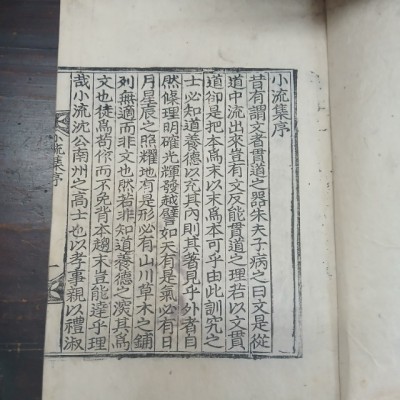 小流集序
昔有謂文者貫道之器朱夫子病之曰文是從
道中流出來豈有文反能貫道之理若以文貫
道卻是把本爲末以末爲本可乎由此訓究之
士必知道養德以充其內則其著見乎外者自
然條理明確光輝發越譬如天有是氣必有日
月星辰之照耀地有是形必有山川草木之鋪
列無適而非文也然若非知道養德之深其爲
文也徒爲苟作而不免背本趨末豈能達乎理
哉小流沈公南州之高士也以孝事親以禮淑
流集序
一